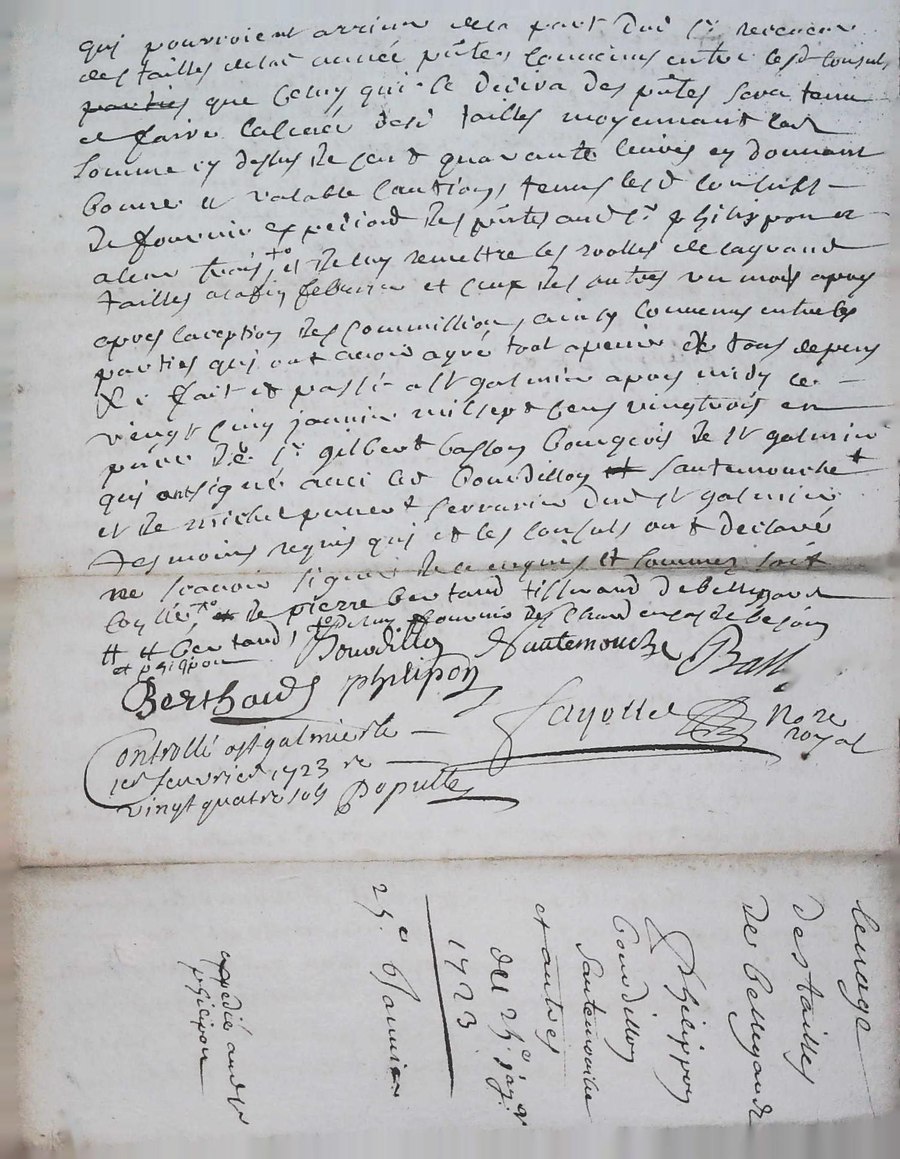 qui pourroient arriver de la part dud sr receveur
des tailles de lad année pntes convenus entre lesd consuls
parties que celuy qui le decira des pntes sera tenu
de faire la levée desd tailles moyennant lad
somme cy dessus de cent quarante livres en donnant
bonne et valable caution, tenus lesd consuls
de fournir expedion des pntes aud sr philippon et
a leur frais, et de luy remettre les rolles de la grand
tailles a la fin febvrier et ceux des autres un mois apres
apres la ception des commissions, ainsy convenus entre les
parties qui ont avoir agréé tout a peine de tous depens
&c fait et passé a st galmier apres midy le
vingt cinq janvier mil sept cens vingt trois en
pnce de sr gilbert basson bourgeois de st galmier
qui ont signé avec led bourdillon et sautemouche
et de michel serrurier dud st galmier
tesmoins requis qui et les consuls ont declaré
ne scavoir signer de ce enquis et sommez soit
de pierre bertaud tisserand de bellegarde
et bertaud, de luy fournir
et philipon Bourdillon Sautemouche Bass
Berthaud philipon
fayolle No re royal
Controllé a st galmier le
1er fevrier 1723 re
vingt quatre sols Populle
levage
des tailles
de bellegarde
Philippon
bourdillon
Sautemouche
et autres
du 25e janr
1723
25e Janvier
expedié aud sr
philipon